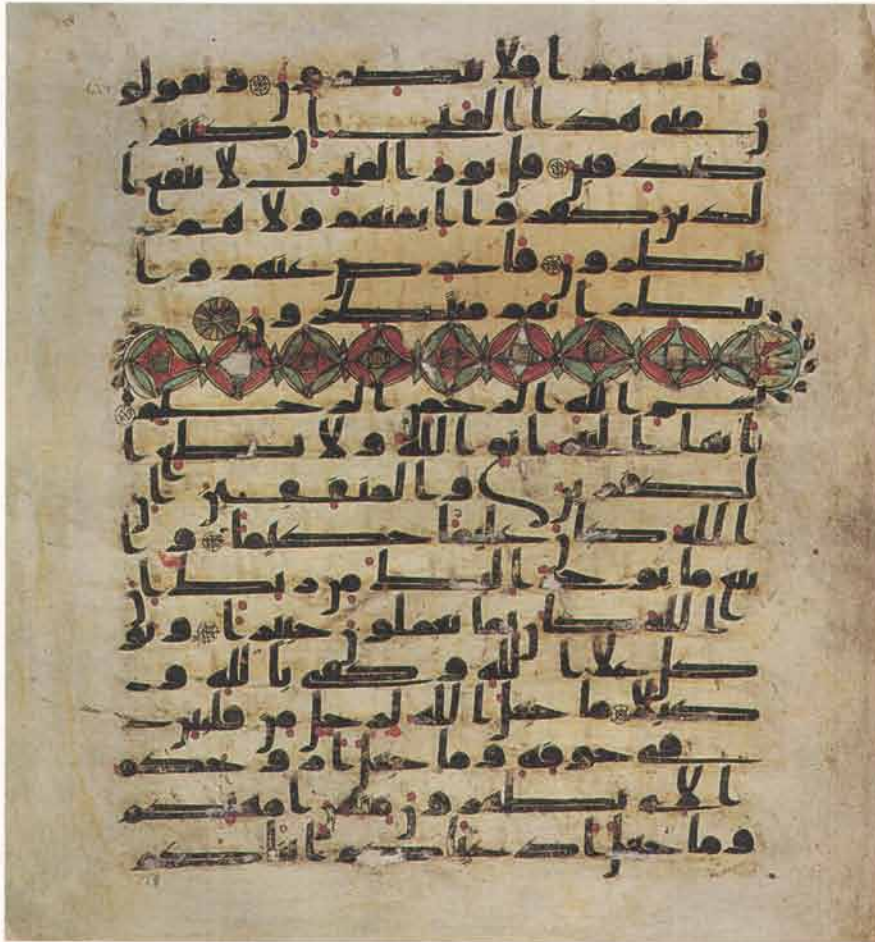 وانفسهم افلا يبصرون ويقولو
ن متى هذا الفتح ان كنتم
صدقين قل يوم الفتح لا ينفع ا
لذين كفروا ايمنهم ولا هم
ينظرون فاعرض عنهم وا
نتظر انهم منتظرون
بسم الله الرحمن الرحيم
يايها النبي اتق الله ولا تطع ا
لكفرين والمنفقين ان
الله كان عليما حكيما وا
تبع ما يوحى اليك من ربك ان
الله كان بما تعملون خبيرا وتو
كل على الله وكفى بالله و
كيلا ما جعل الله لرجل من قلبين
في جوفه وما جعل ازوجكم
الي تظهرون منهن امهتكم
وما جعل ادعياكم ابناكم